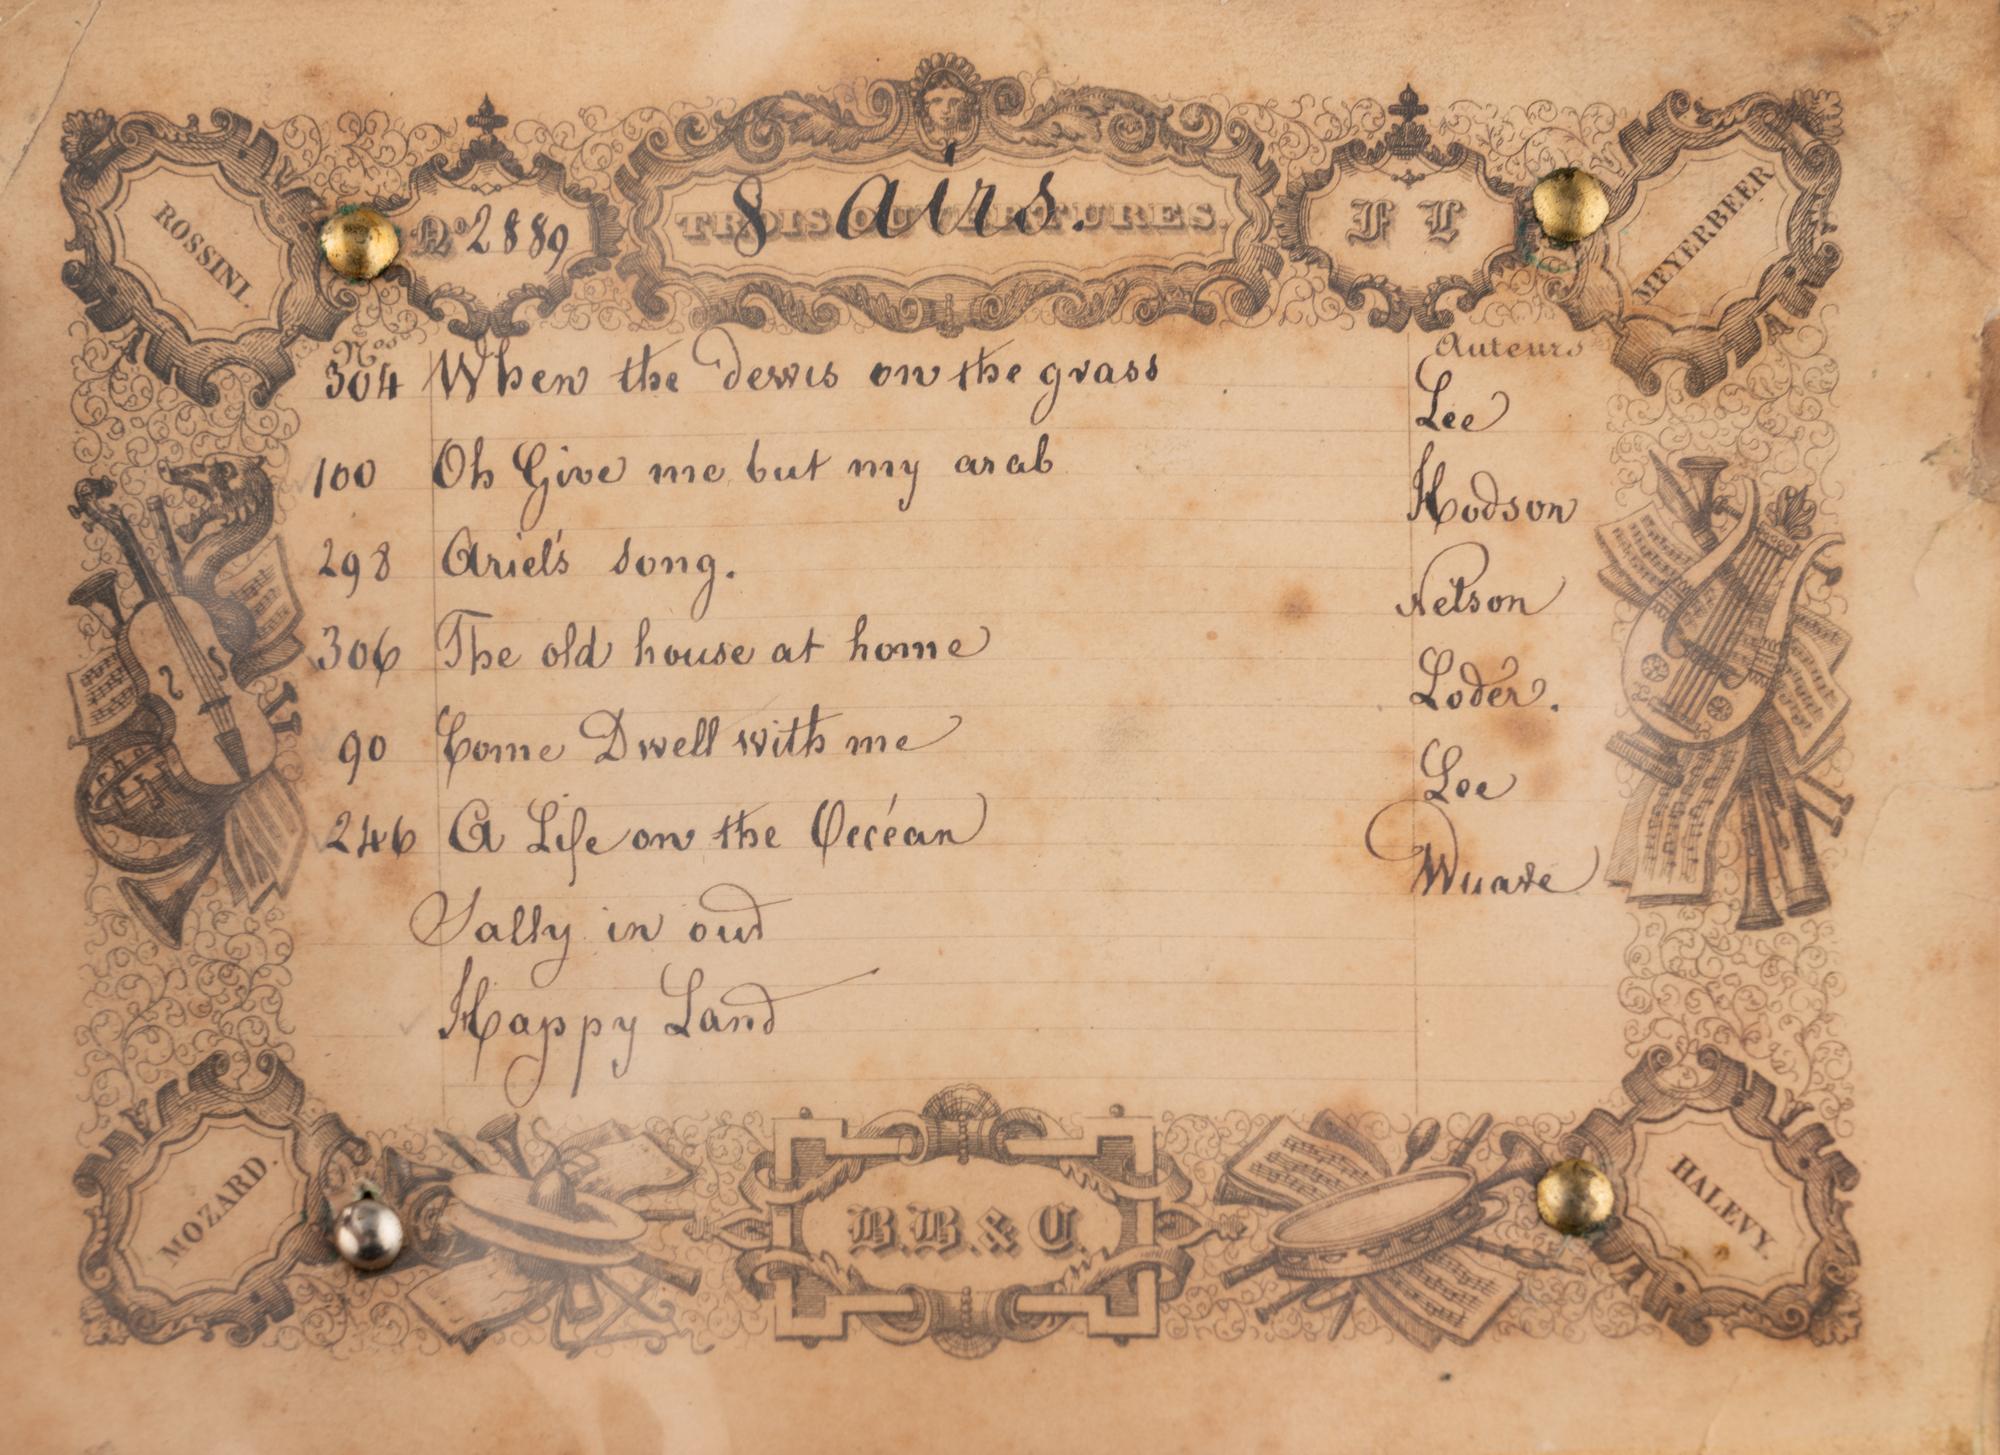 ROSSINI.
Nº 2889
TROIS OUVERTURES.
8 airs.
F L
MEYERBEER
Nos
Auteurs
304 When the dews on the grass
Lee
100 Oh Give me but my arab
Hodson
298 Ariel's song.
Nelson
306 The old house at home
Loder.
90 Come Dwell with me
Lee
246 A Life on the Occéan
Sally in our
Happy Land
MOZARD.
B.B. & C.
HALEVY.